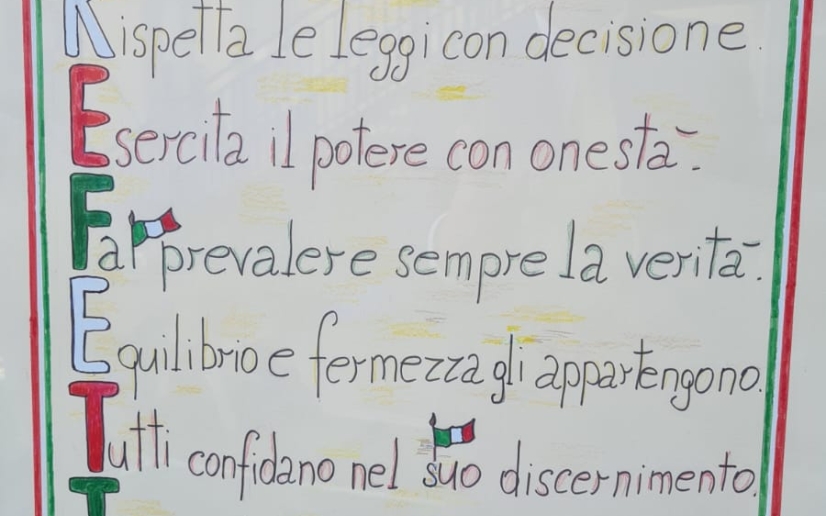 Rispetta le leggi con decisione.
Esercita il potere con onestà.
Fa prevalere sempre la verità.
Equilibrio e fermezza gli appartengono.
Tutti confidano nel suo discernimento.
T